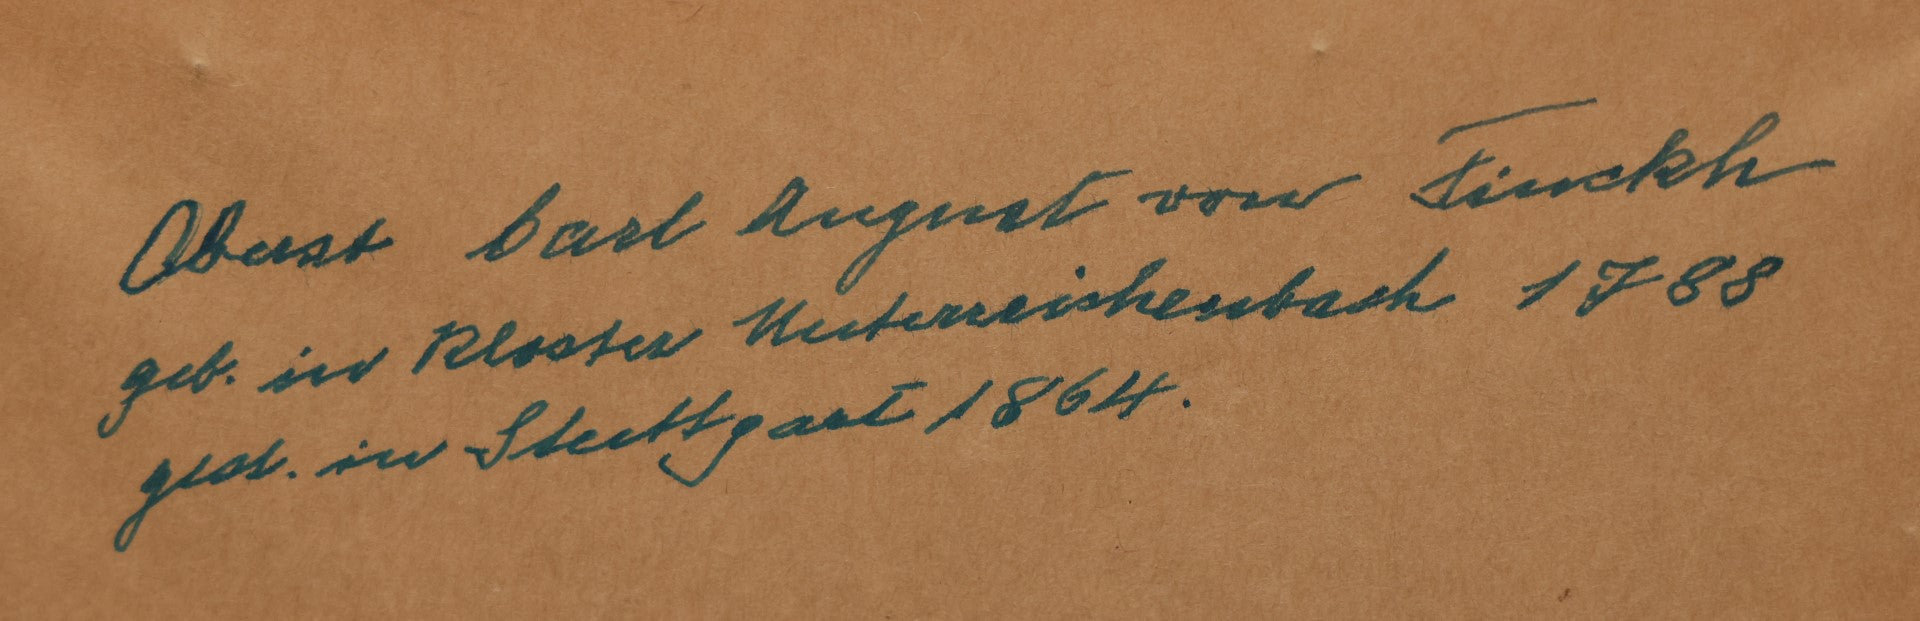 Oberst Carl August von Finckh
geb. in Kloster Unterreichenbach 1788
gest. in Stuttgart 1864.